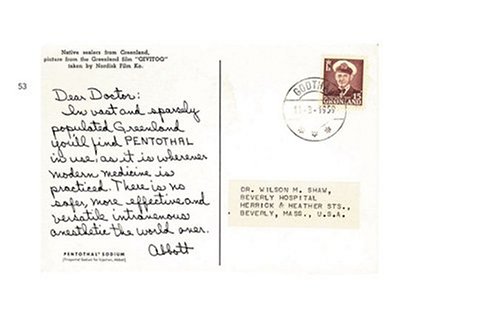 53
Native sealers from Greenland,
picture from the Greenland film "QIVITOQ"
taken by Nordisk Film Ko.
Dear Doctor:
In vast and sparsely
populated Greenland
you'll find PENTOTHAL
in use, as it is wherever
modern medicine is
practiced. There is no
safer, more effective and
versatile intravenous
anesthetic the world over.
Abbott
PENTOTHAL® SODIUM
(Thiopental Sodium for Injection, Abbott)
GRØNLAND
15
GODTH
11-3-1959
DR. WILSON M. SHAW,
BEVERLY HOSPITAL
HERRICK & HEATHER STS.,
BEVERLY, MASS., U.S.A.